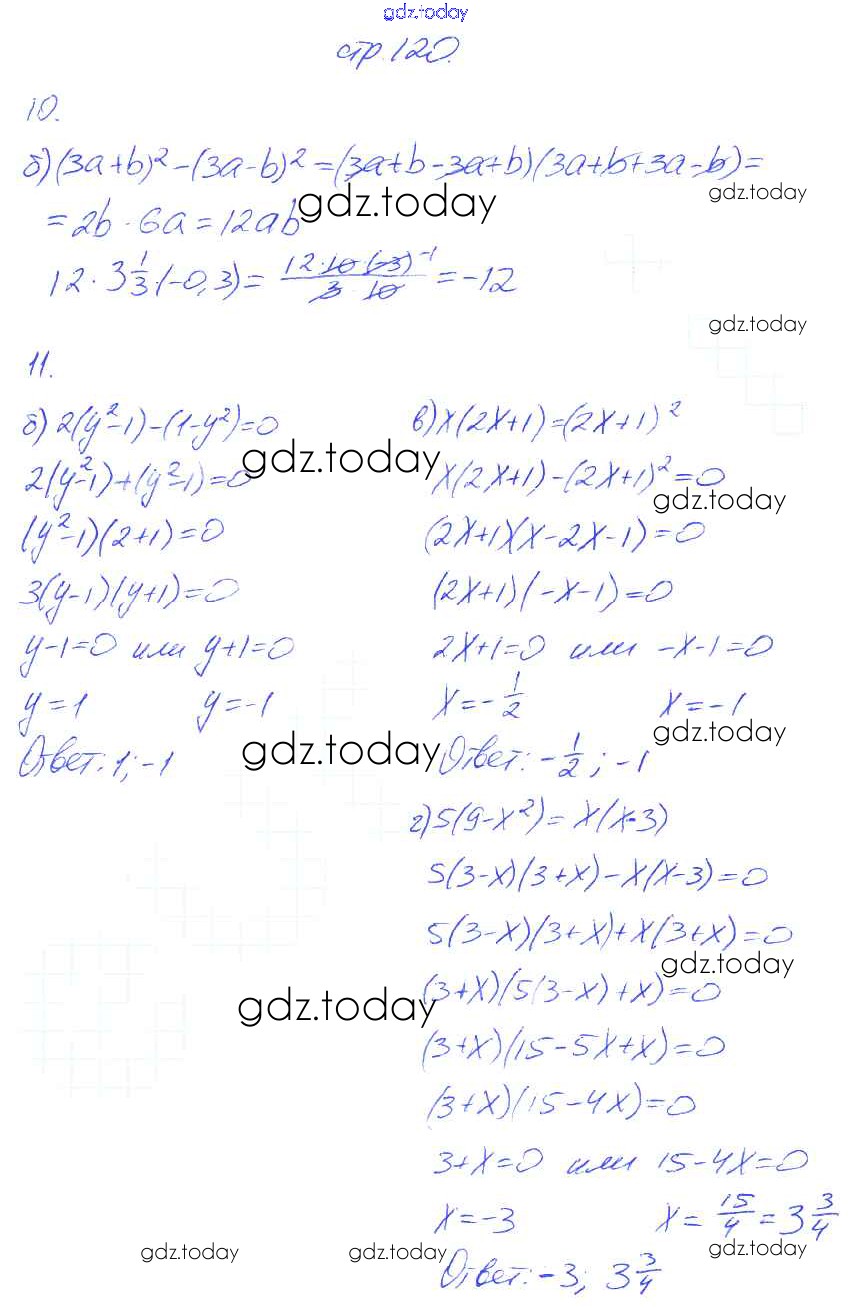 gdz.today
стр. 120.
10.
б) (3a+b)² - (3a-b)² = (3a+b-3a+b)(3a+b+3a-b) =
gdz.today
= 2b · 6a = 12ab
gdz.today
12 · 3 1/3 · (-0,3) = (12 · 10 · (-3)⁻¹)/(3 · 10) = -12
gdz.today
11.
б) 2(y²-1) - (1-y²) = 0
2(y²-1) + (y²-1) = 0
gdz.today
(y²-1)(2+1) = 0
3(y-1)(y+1) = 0
y-1=0 или y+1=0
y=1 y=-1
Ответ: 1; -1
gdz.today
в) x(2x+1) = (2x+1)²
x(2x+1) - (2x+1)² = 0
gdz.today
(2x+1)(x-2x-1) = 0
(2x+1)(-x-1) = 0
2x+1=0 или -x-1=0
x = -1/2 x = -1
gdz.today
Ответ: -1/2; -1
г) 5(9-x²) = x(x-3)
5(3-x)(3+x) - x(x-3) = 0
5(3-x)(3+x) + x(3+x) = 0
gdz.today
(3+x)(5(3-x)+x) = 0
gdz.today
(3+x)(15-5x+x) = 0
(3+x)(15-4x) = 0
3+x=0 или 15-4x=0
x=-3 x = 15/4 = 3 3/4
gdz.today gdz.today gdz.today
Ответ: -3; 3 3/4